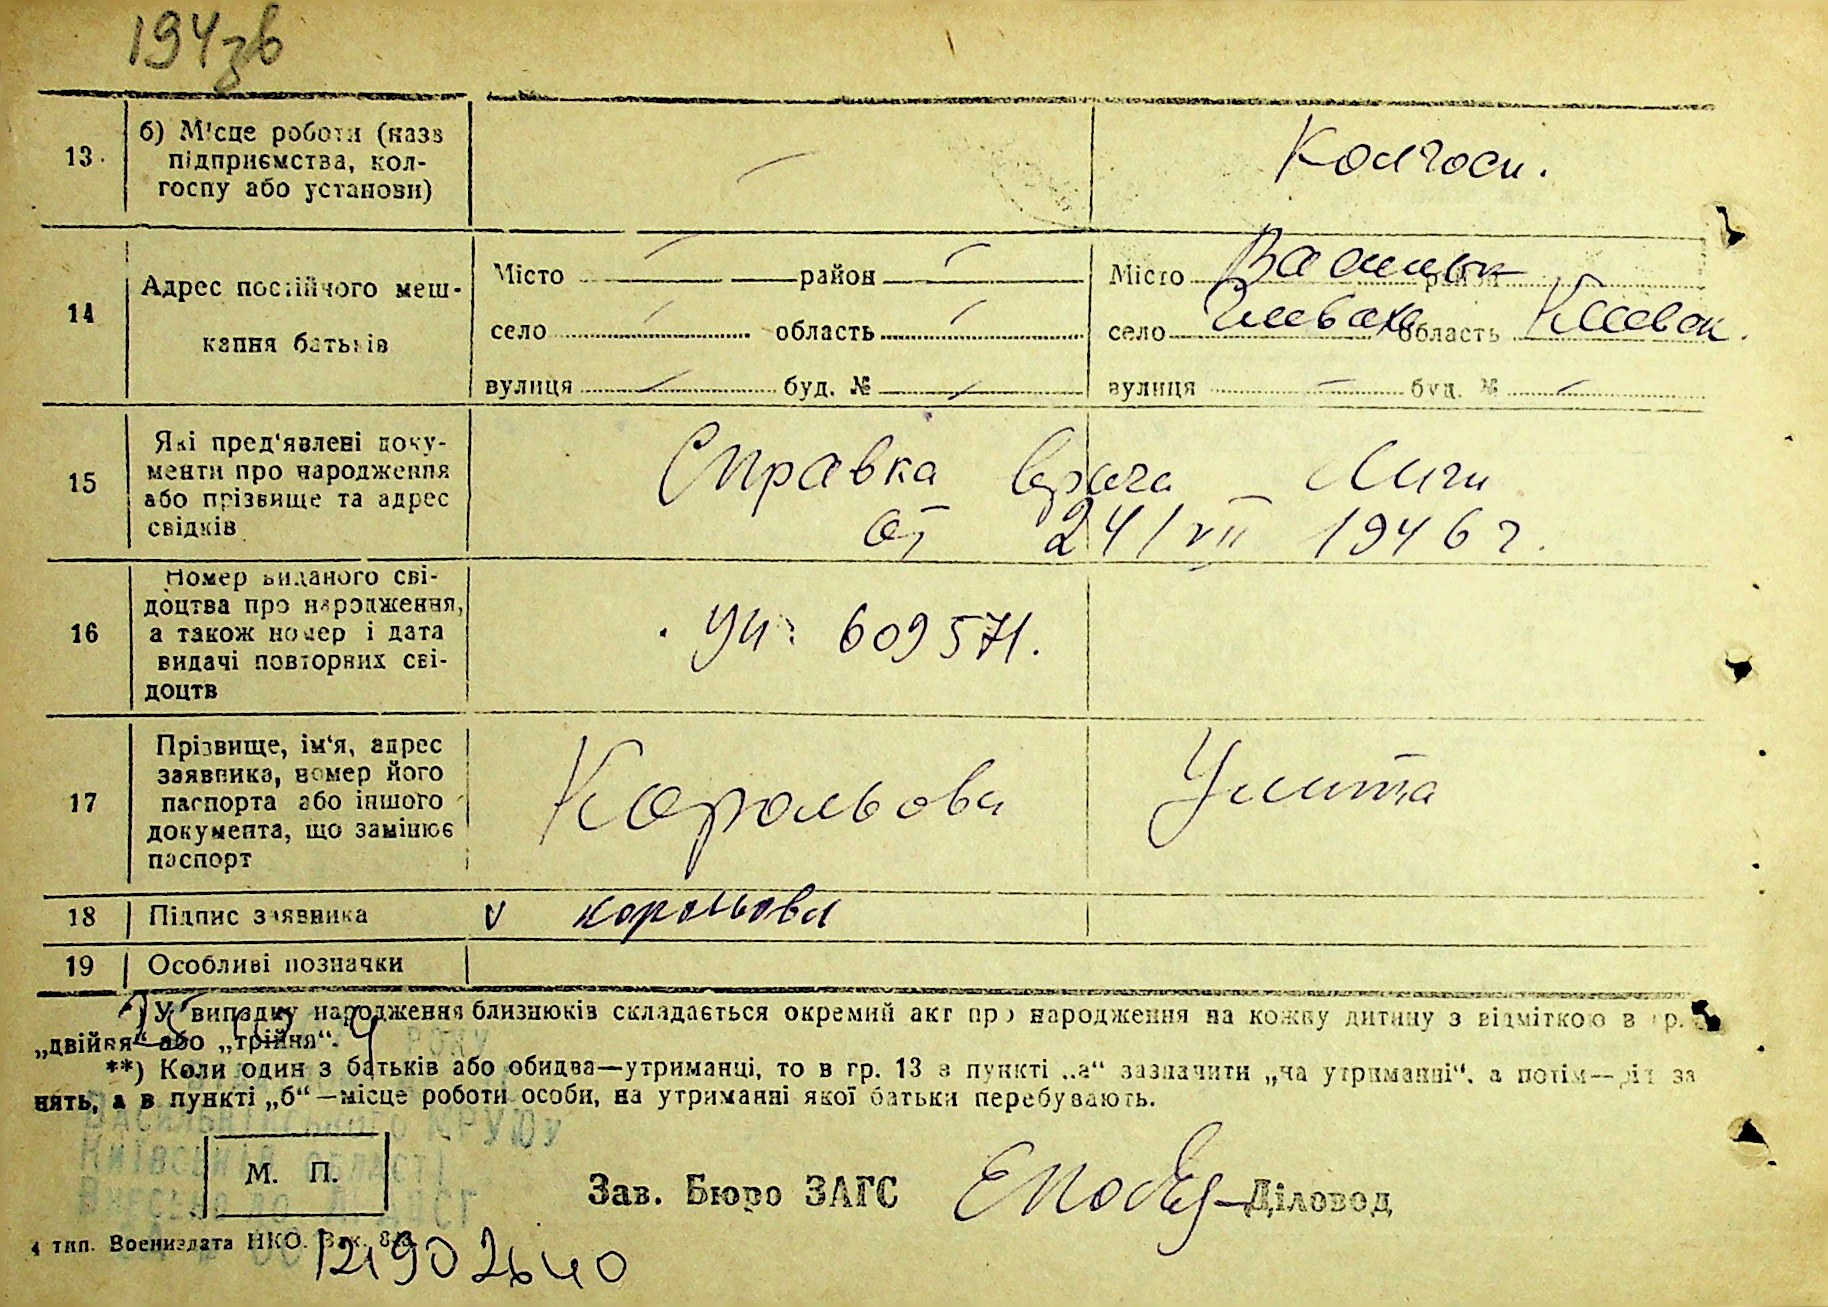 194зв
13. б) Місце роботи (назв
підприємства, кол-
госпу або установи) — Колгосп.
14 Адрес постійного меш-
кання батьків
Місто — район — Місто Васильк район
село — область — село Глеваха область Киевск.
вулиця — буд. № — вулиця — буд. № —
15 Які пред'явлені доку-
менти про народження
або прізвище та адрес
свідків
Справка врача
от 24/VII 1946 г.
16 Номер виданого сві-
доцтва про народження,
а також номер і дата
видачі повторних сві-
доцтв
609571.
17 Прізвище, ім'я, адрес
заявника, номер його
паспорта або іншого
документа, що замінює
паспорт
Корольова Улита
18 Підпис заявника v корольова
19 Особливі позначки
*) У випадку народження близнюків складається окремий акт про народження на кожну дитину з відміткою в гр.
„двійня“ або „трійня“.
РОКУ
**) Коли один з батьків або обидва—утриманці, то в гр. 13 в пункті „а“ зазначити „на утриманні“, а потім—рід за
нять, а в пункті „б“—місце роботи особи, на утриманні якої батьки перебувають.
ВАСИЛЬКІВСЬКОГО МРУЮ
КИЇВСЬКІЙ ОБЛАСТІ
М. П.
Зав. Бюро ЗАГС Діловод
ВНЕСЕНО ДО ДРАЦСГ
4 тип. Воениздата НКО. Зак.